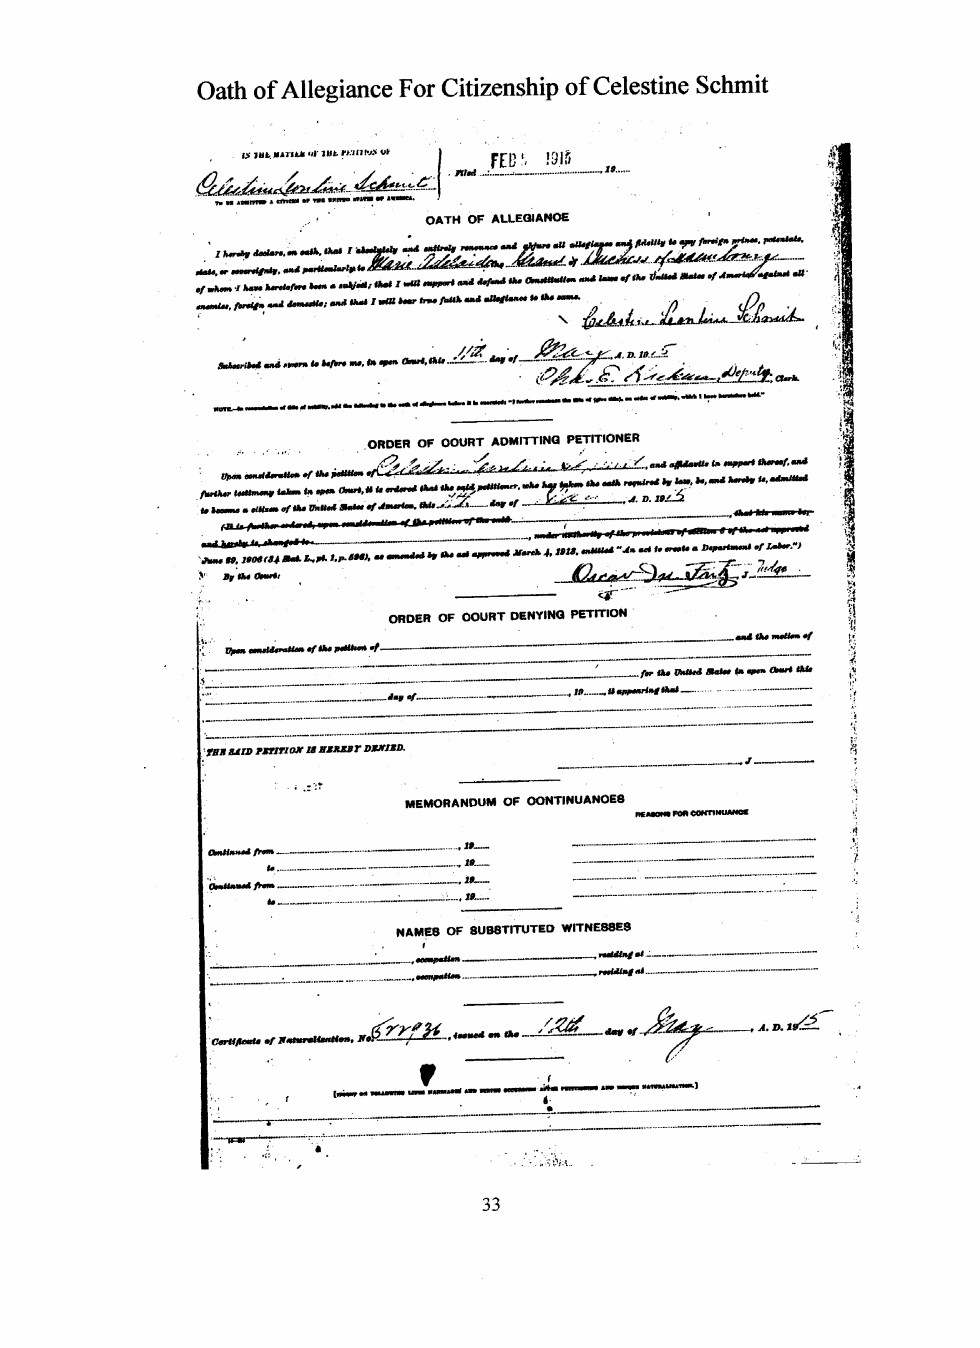 Oath of Allegiance For Citizenship of Celestine Schmit
IN THE MATTER OF THE PETITION OF
Celestine Leontine Schmit
Filed FEB 1915, 19
TO BE ADMITTED A CITIZEN OF THE UNITED STATES OF AMERICA.
OATH OF ALLEGIANCE
I hereby declare, on oath, that I absolutely and entirely renounce and abjure all allegiance and fidelity to any foreign prince, potentate,
state, or sovereignty, and particularly to Marie Adelaide, Grand Duchess of Luxembourg
of whom I have heretofore been a subject; that I will support and defend the Constitution and laws of the United States of America against all
enemies, foreign and domestic; and that I will bear true faith and allegiance to the same.
Celestine Leontine Schmit
Subscribed and sworn to before me, in open Court, this 11th day of May A. D. 1915
Chas. E. Deputy Clerk.
NOTE.—In renunciation of title of nobility, add the following to the oath of allegiance before it is executed: "I further renounce the title of (give title), an order of nobility, which I have heretofore held."
ORDER OF COURT ADMITTING PETITIONER
Upon consideration of the petition of Celestine Leontine Schmit, and affidavits in support thereof, and
further testimony taken in open Court, it is ordered that the said petitioner, who has taken the oath required by law, be, and hereby is, admitted
to become a citizen of the United States of America, this 11th day of May, A. D. 1915
(It is further ordered, upon consideration of the petition of the said, that his name be,
and hereby is, changed to, under authority of the provisions of section 6 of the act approved
June 29, 1906 (34 Stat. L., pt. 1, p. 596), as amended by the act approved March 4, 1913, entitled "An act to create a Department of Labor.")
By the Court:
Oscar M. Fritz, Judge
ORDER OF COURT DENYING PETITION
Upon consideration of the petition of and the motion of
for the United States in open Court this
day of, 19, it appearing that
THE SAID PETITION IS HEREBY DENIED.
, J
MEMORANDUM OF CONTINUANCES
REASONS FOR CONTINUANCE
Continued from, 19
to, 19
Continued from, 19
to, 19
NAMES OF SUBSTITUTED WITNESSES
, occupation, residing at
, occupation, residing at
Certificate of Naturalization, No. 522936, issued on the 12th day of May, A. D. 1915
33